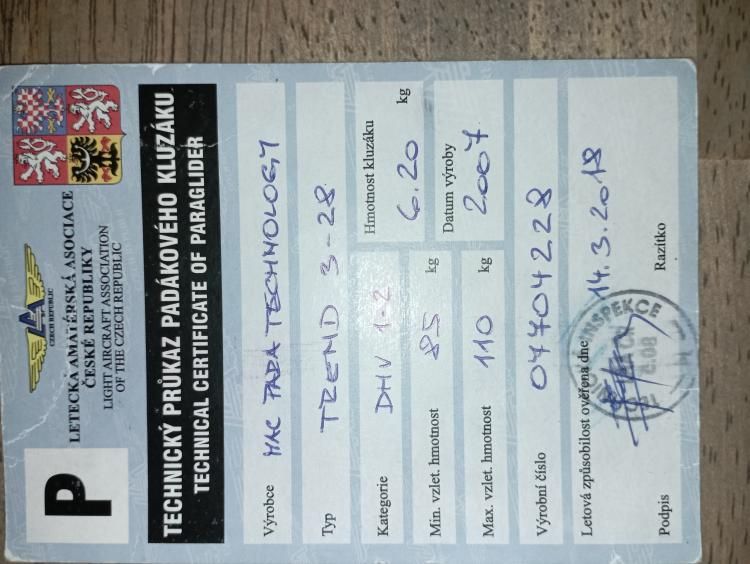 P
CZECH REPUBLIC
LETECKÁ AMATÉRSKÁ ASOCIACE
ČESKÉ REPUBLIKY
LIGHT AIRCRAFT ASSOCIATION
OF THE CZECH REPUBLIC
TECHNICKÝ PRŮKAZ PADÁKOVÉHO KLUZÁKU
TECHNICAL CERTIFICATE OF PARAGLIDER
Výrobce MAC PARA TECHNOLOGY
Typ TREND 3-28
Kategorie DHV 1-2 Hmotnost kluzáku 6.20 kg
Min. vzlet. hmotnost 85 kg
Datum výroby 2007
Max. vzlet. hmotnost 110 kg
Výrobní číslo 04704228
Letová způsobilost ověřena dne 14.3.2018
INSPEKCE
Podpis Razítko